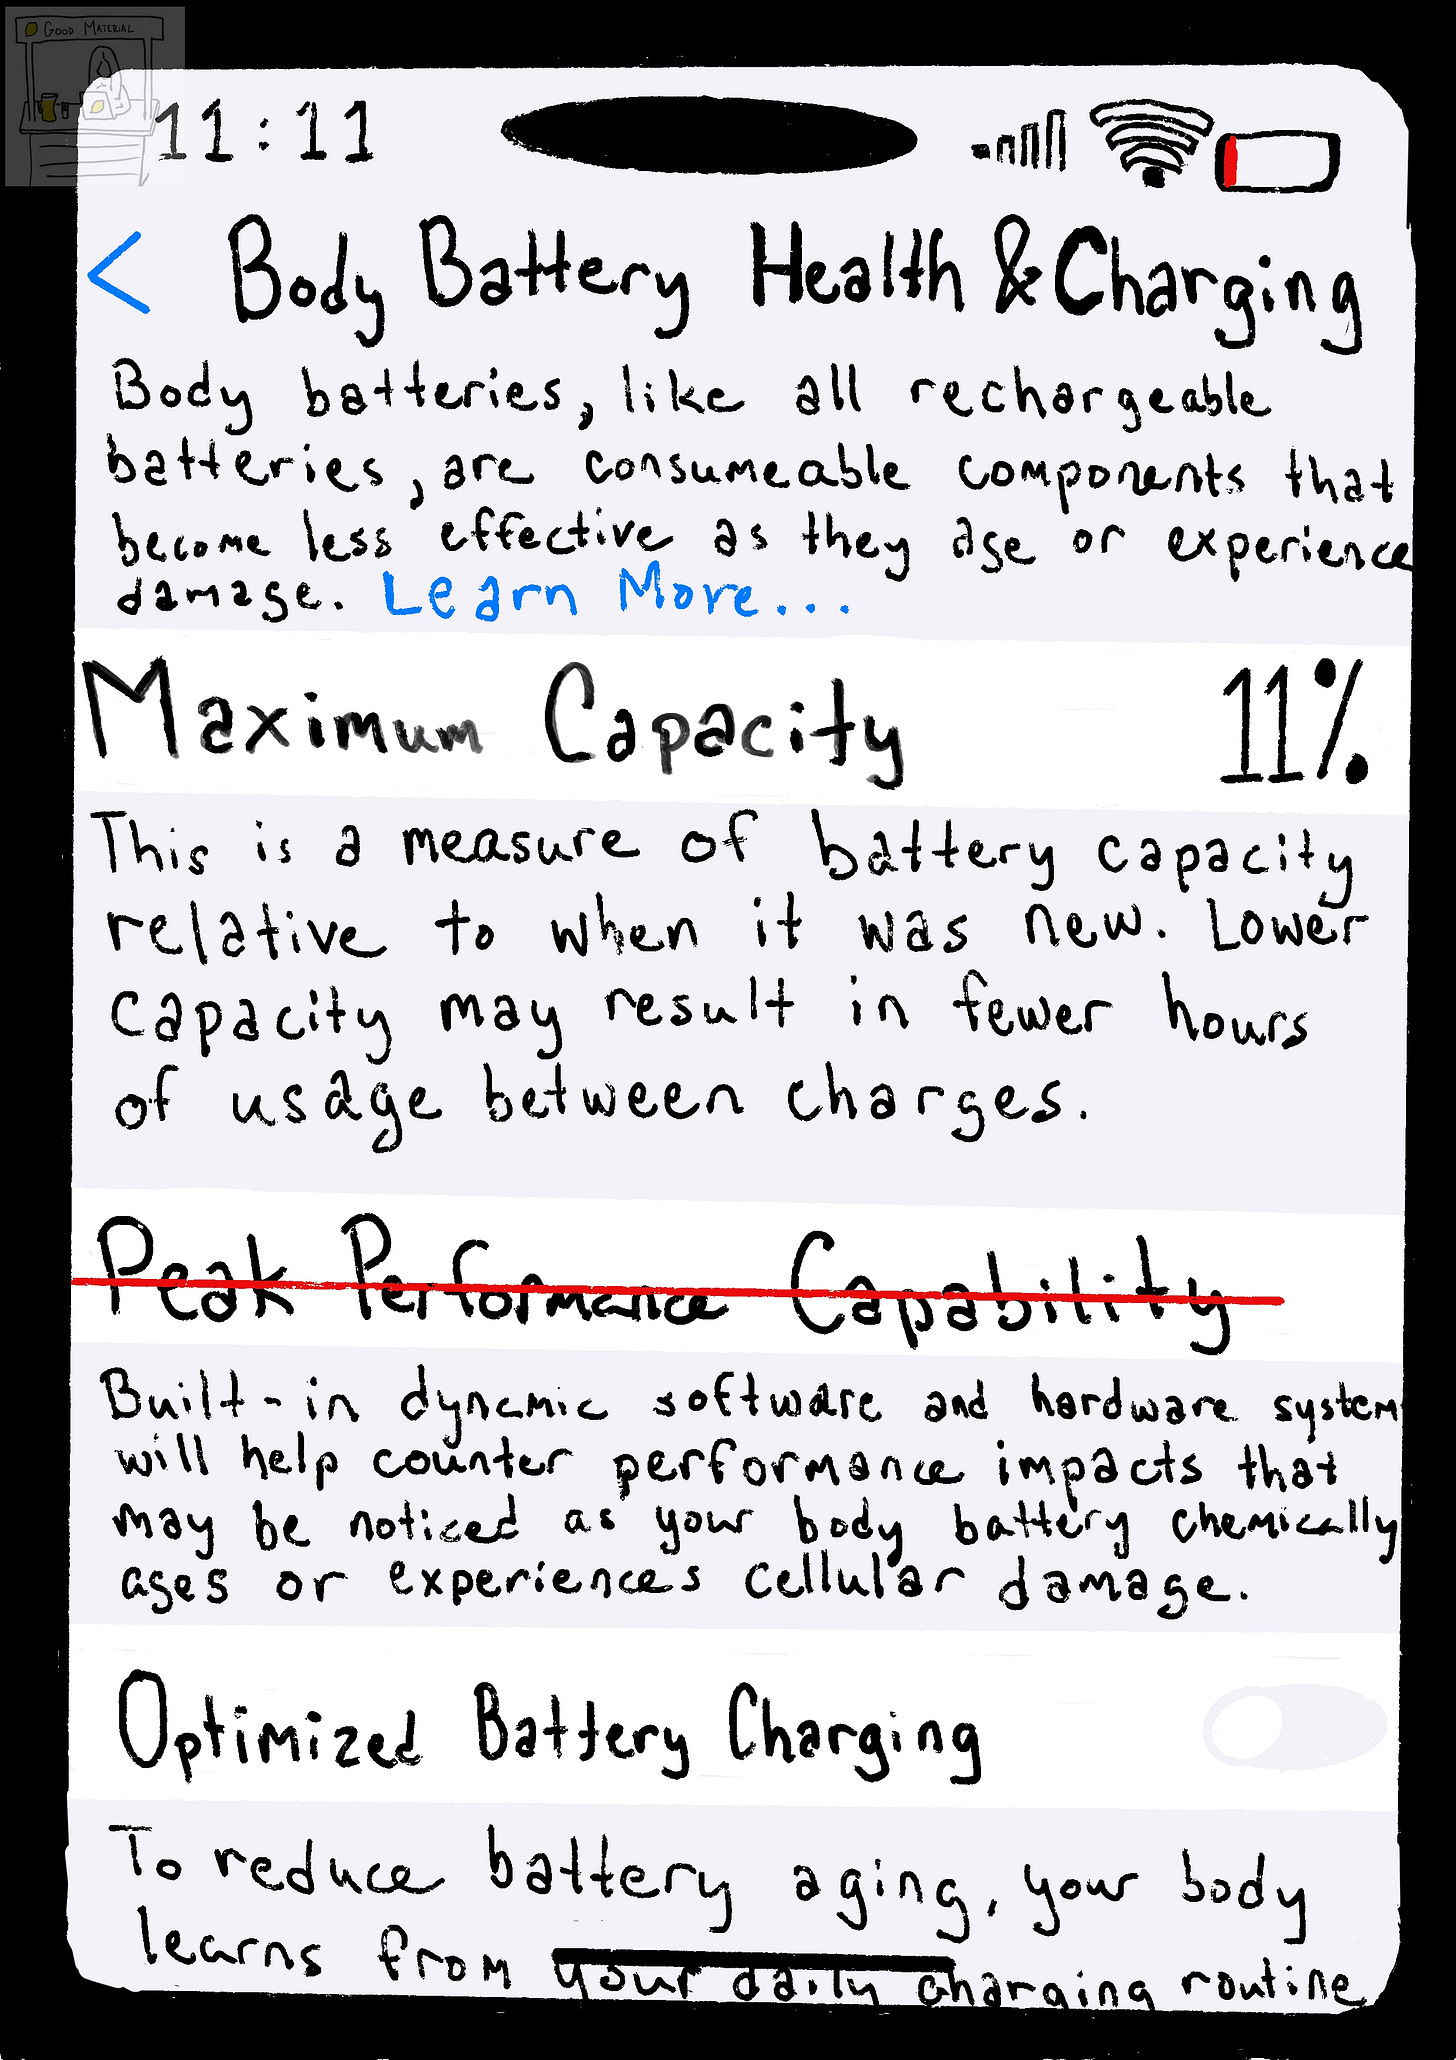 Good Material
11:11
< Body Battery Health & Charging
Body batteries, like all rechargeable
batteries, are consumeable components that
become less effective as they age or experience
damage. Learn More...
Maximum Capacity 11%
This is a measure of battery capacity
relative to when it was new. Lower
capacity may result in fewer hours
of usage between charges.
Peak Performance Capability
Built-in dynamic software and hardware system
will help counter performance impacts that
may be noticed as your body battery chemically
ages or experiences cellular damage.
Optimized Battery Charging
To reduce battery aging, your body
learns from your daily charging routine